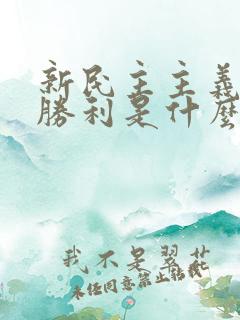 新民主主義
勝利是什麼
我不是翠花
未經同意禁止轉載